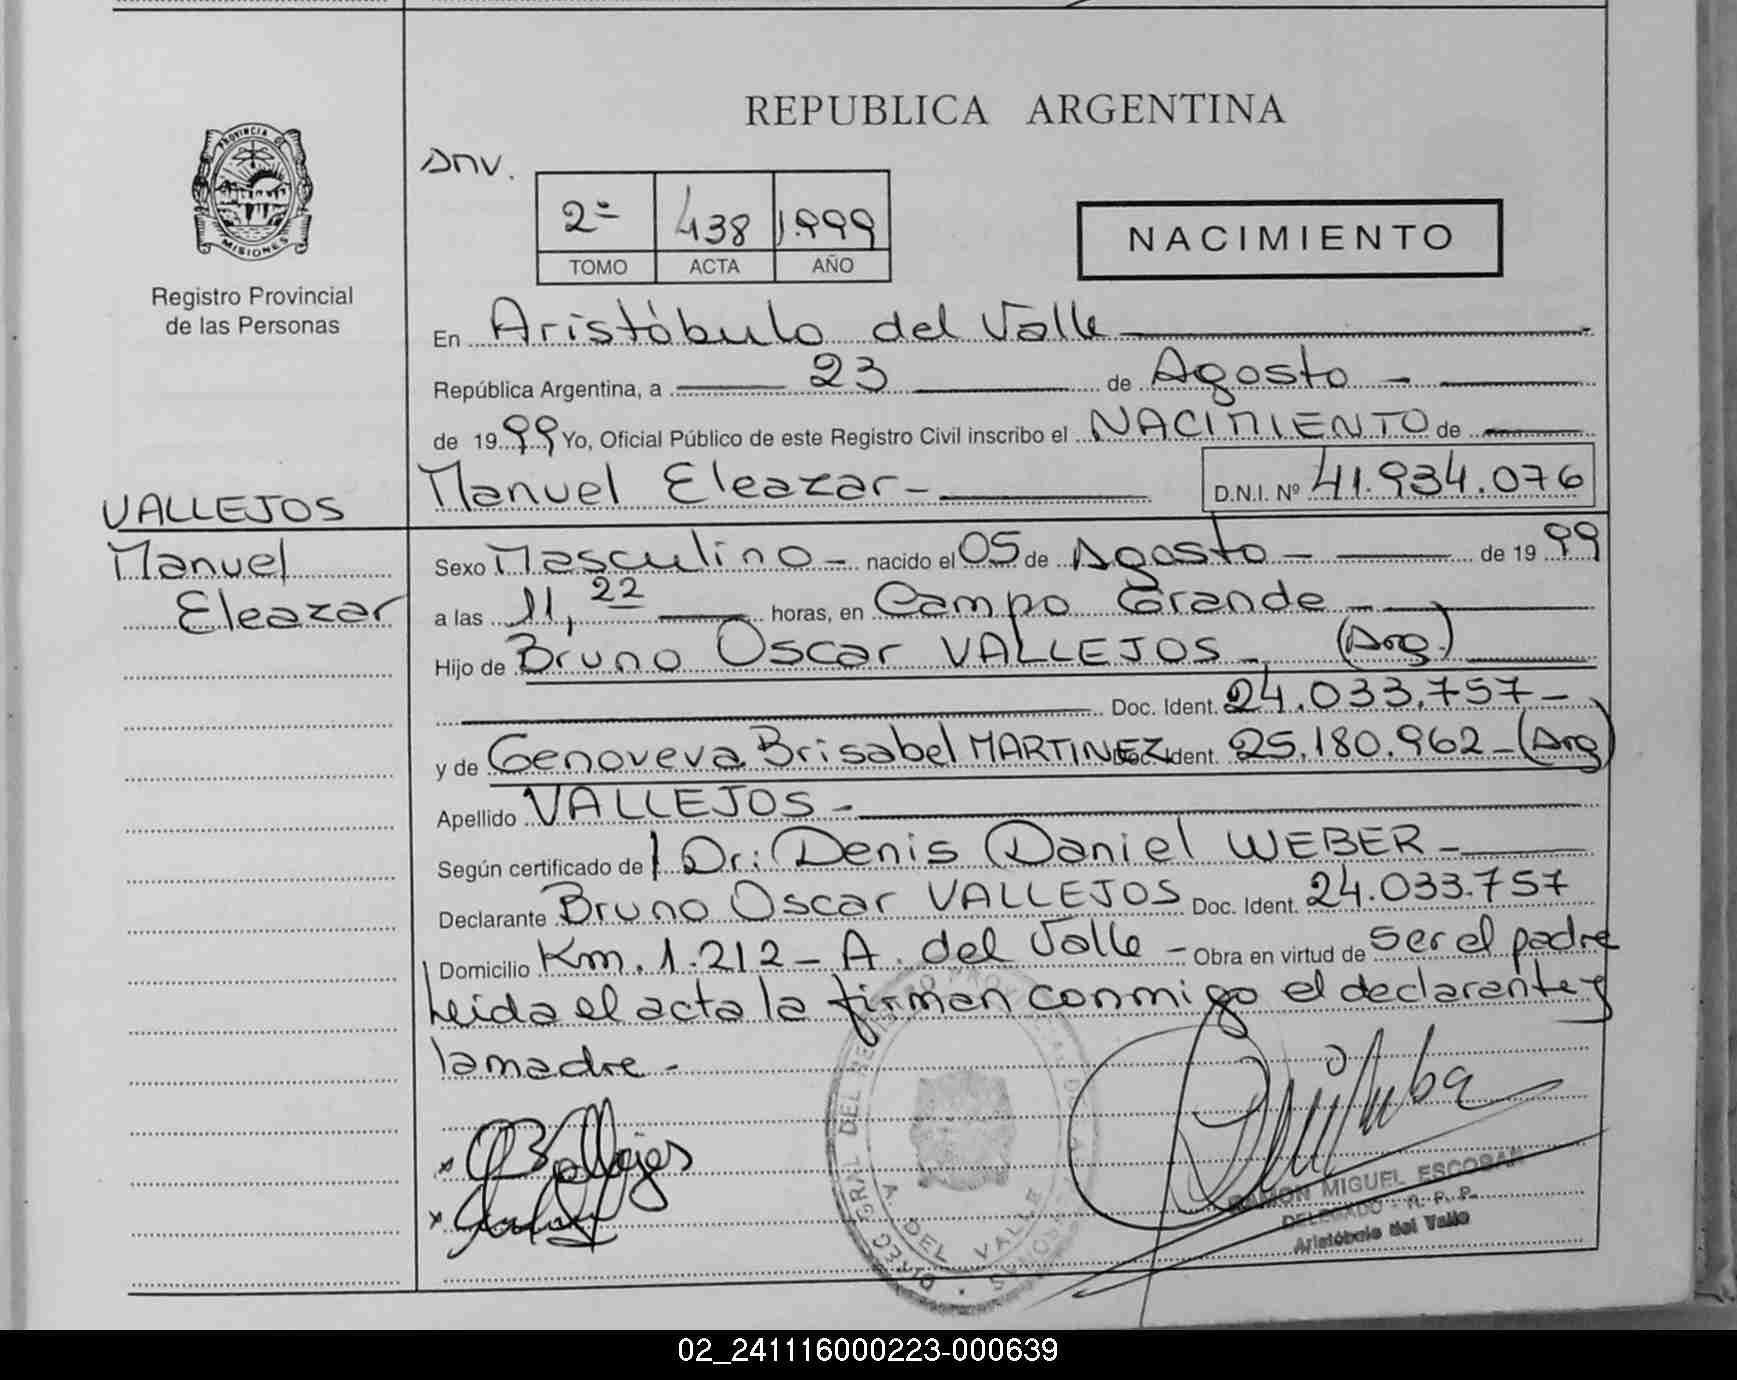 REPUBLICA ARGENTINA
PROVINCIA DE
MISIONES
Registro Provincial
de las Personas
Dnv.
2º 438 1.999
TOMO ACTA AÑO
NACIMIENTO
En Aristóbulo del Valle
República Argentina, a 23 de Agosto
de 1999 Yo, Oficial Público de este Registro Civil inscribo el NACIMIENTO de
Manuel Eleazar D.N.I. Nº 41.934.076
VALLEJOS
Manuel
Eleazar
Sexo Masculino nacido el 05 de Agosto de 1999
a las 11,22 horas, en Campo Grande
Hijo de Bruno Oscar VALLEJOS (Arg.)
Doc. Ident. 24.033.757
y de Genoveva Brisabel MARTINEZ Doc. Ident. 25.180.962 (Arg)
Apellido VALLEJOS
Según certificado de Dr: Denis Daniel WEBER
Declarante Bruno Oscar VALLEJOS Doc. Ident. 24.033.757
Domicilio Km. 1.212 - A. del Valle - Obra en virtud de ser el padre
Leida el acta la firman conmigo el declarante y
la madre.
A. DEL VALLE
RAMON MIGUEL ESCOBAR
DELEGADO - R. P. P.
Aristóbulo del Valle
02_241116000223-000639